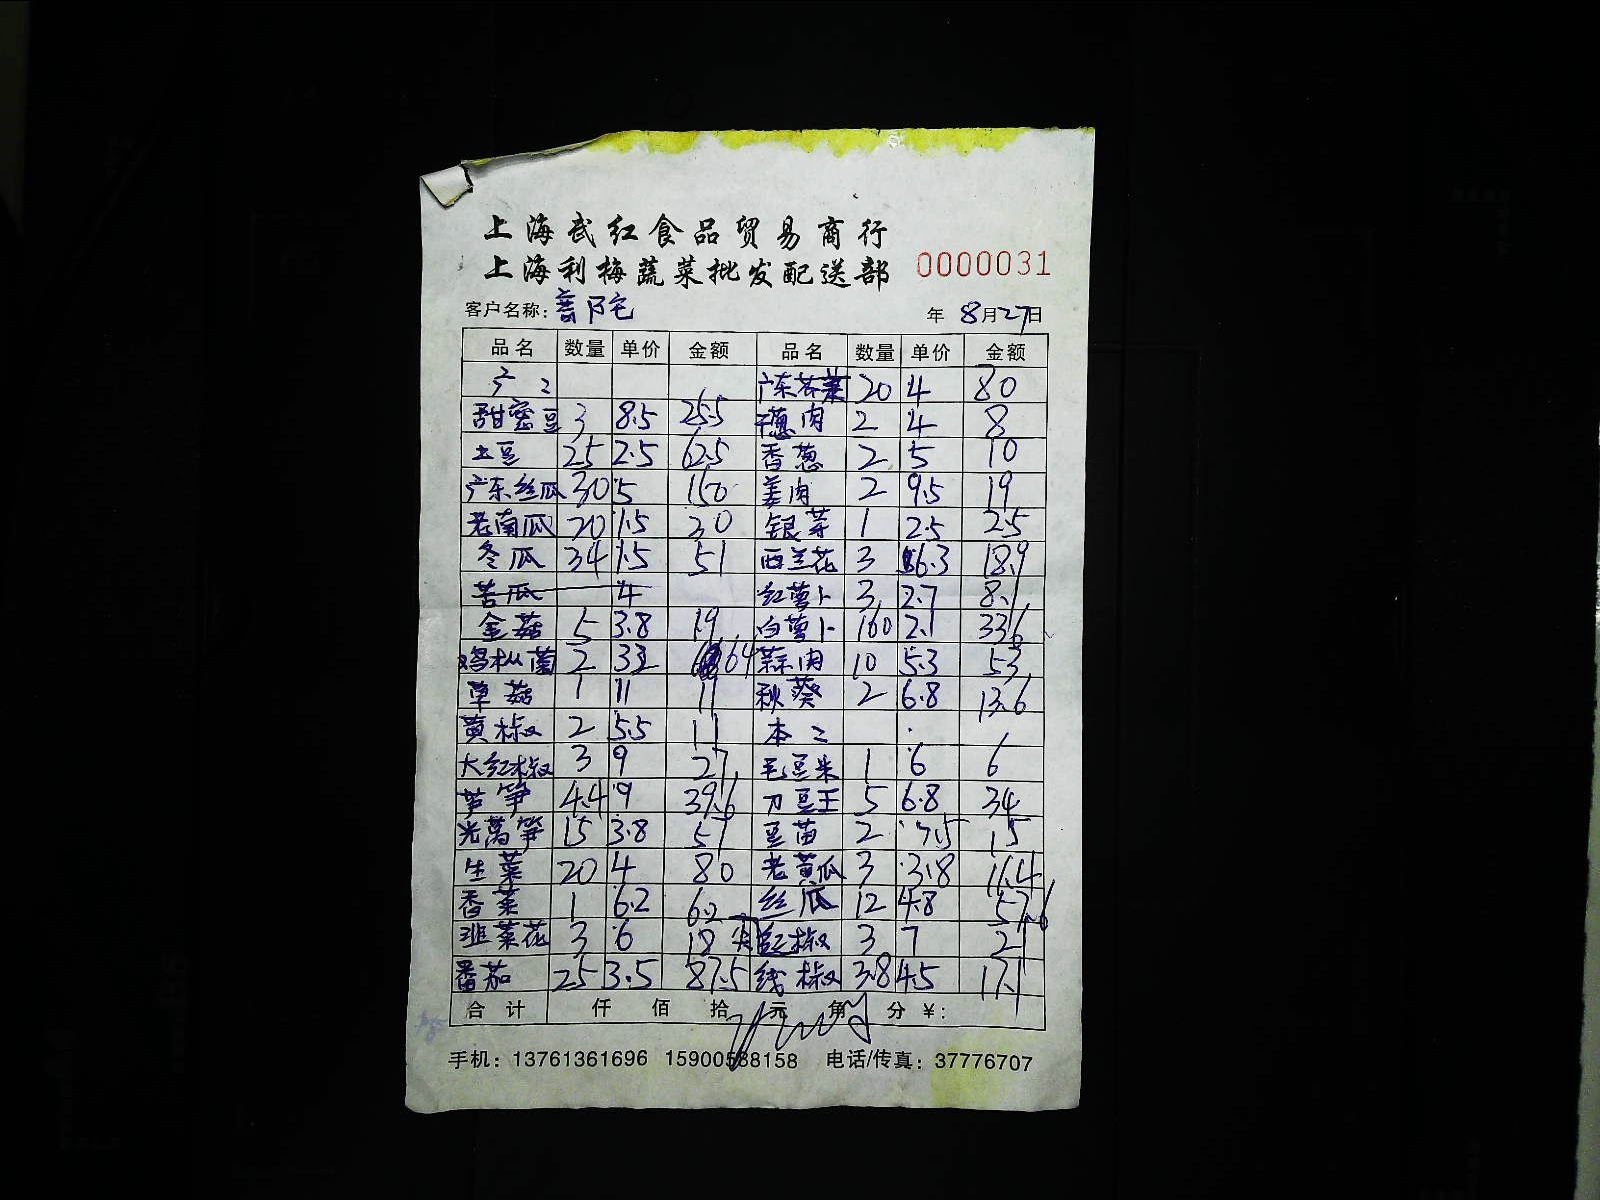 上海武红食品贸易商行
上海利梅蔬菜批发配送部 0000031
客户名称： 年 8月27日
品名 数量 单价 金额 品名 数量 单价 金额
广东芥菜 20 4 80
甜蜜豆 3 8.5 25.5 干葱肉 2 4 8
土豆 25 2.5 62.5 香葱 2 5 10
广东丝瓜 30 5 150 姜肉 2 9.5 19
老南瓜 20 1.5 30 银芽 1 2.5 2.5
冬瓜 34 1.5 51 西兰花 3 6.3 18.9
苦瓜 4 红萝卜 3 2.7 8.1
金菇 5 3.8 19 白萝卜 160 2.1 336
鸡枞菌 2 32 64 蒜肉 10 5.3 53
草菇 1 11 11 秋葵 2 6.8 13.6
黄椒 2 5.5 11 本
大红椒 3 9 27 毛豆米 1 6 6
芦笋 4.4 9 39.6 刀豆王 5 6.8 34
光莴笋 15 3.8 57 豆苗 2 7.5 15
生菜 20 4 80 老黄瓜 3 3.8 11.4
香菜 1 6.2 6.2 丝瓜 12 4.8 57.6
韭菜花 3 6 18 尖红椒 3 7 21
番茄 25 3.5 87.5 线椒 3.8 4.5 17.1
合计 仟 佰 拾 元 角 分 ¥：
手机：13761361696 15900588158 电话/传真：37776707